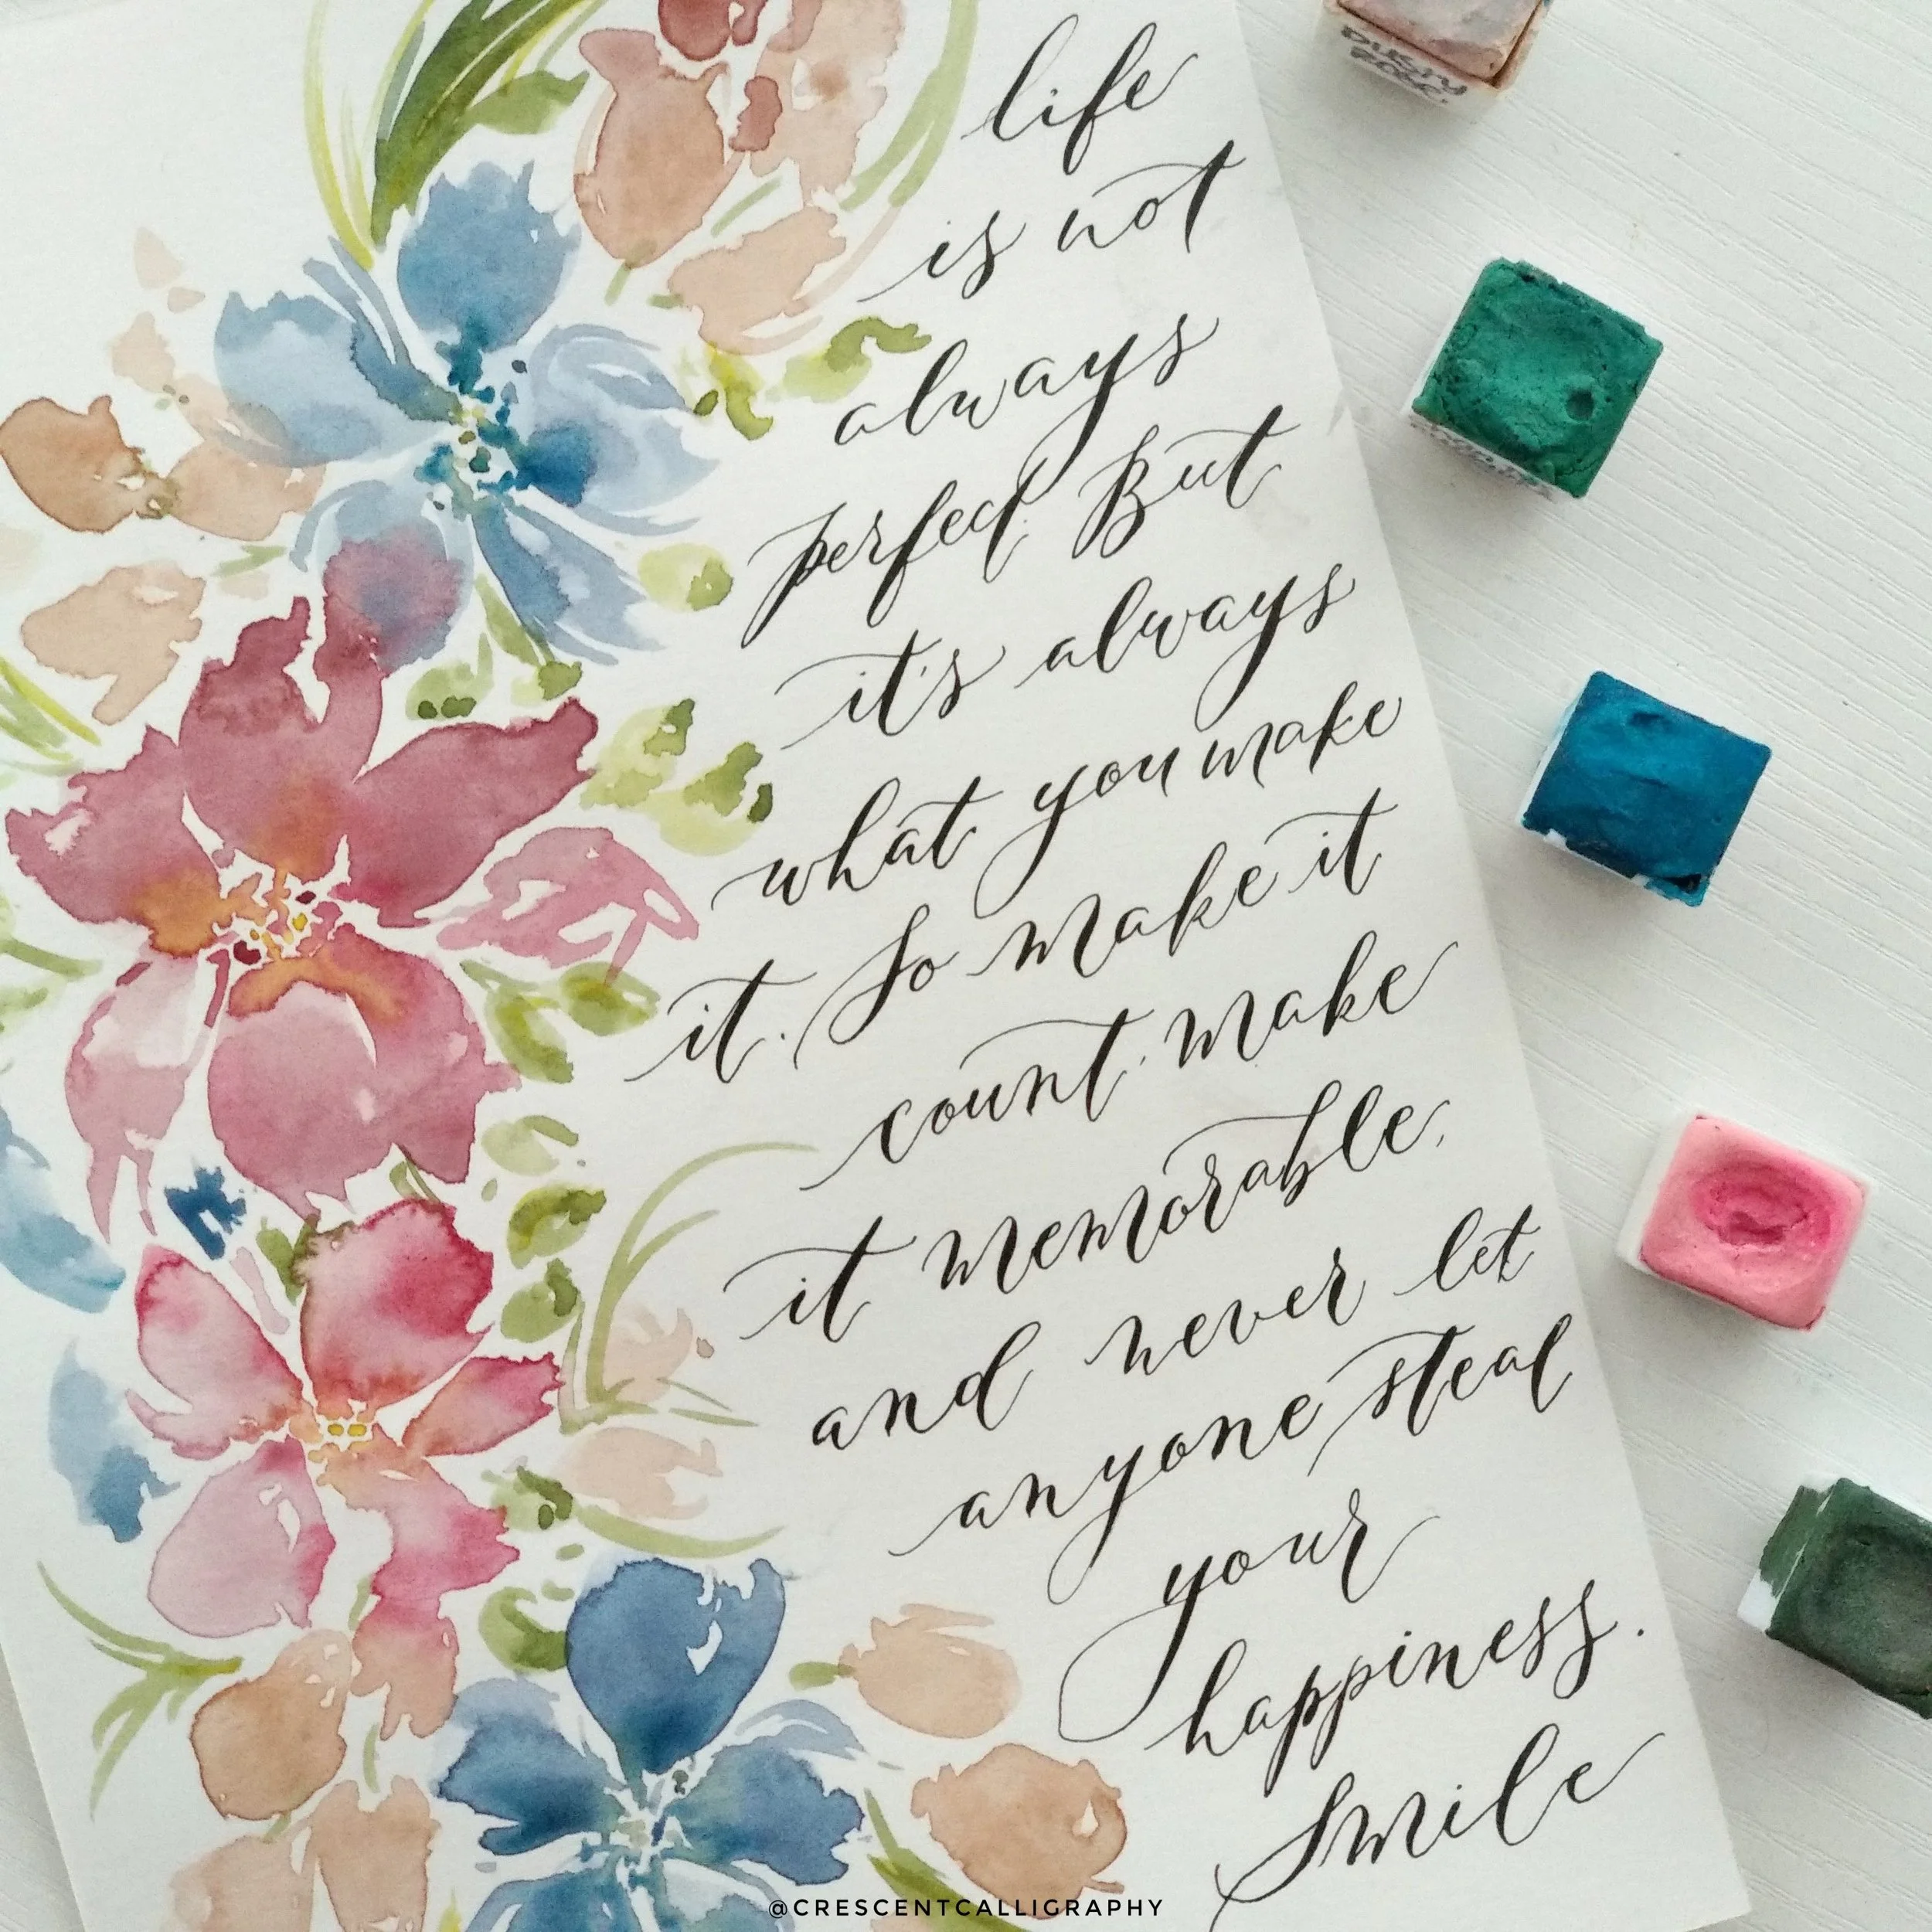 life
is not
always
perfect, But
it's always
what you make
it. So make it
count. make
it memorable.
and never let
anyone steal
your
happiness.
Smile
@CRESCENTCALLIGRAPHY